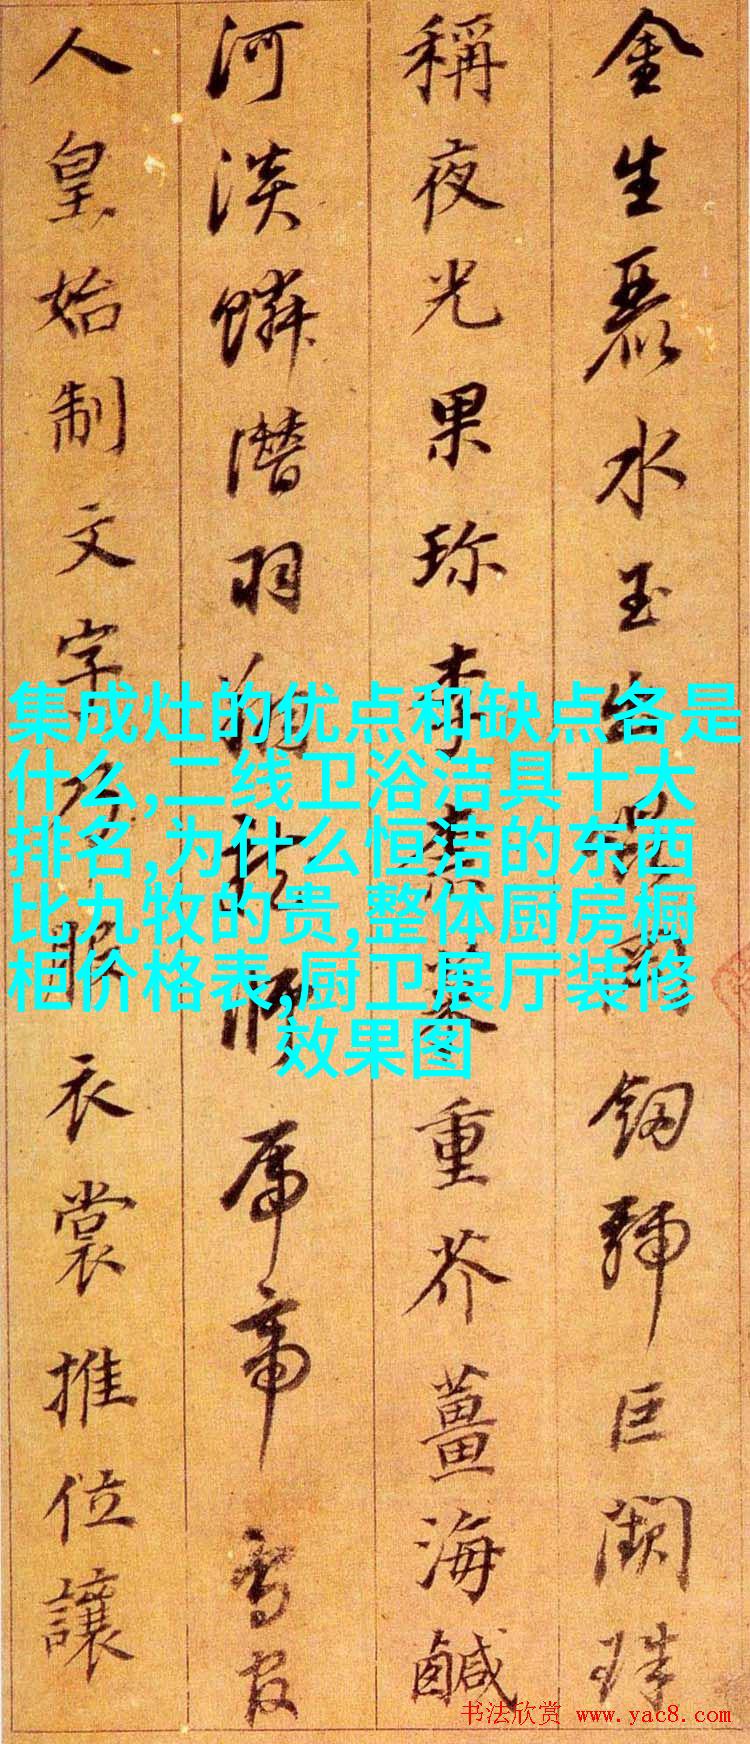 金生麗水玉出崑崗劍號巨闕珠
稱夜光果珍李柰菜重芥薑海鹹
河淡鱗潛羽翔龍師火帝鳥官
人皇始制文字乃服衣裳推位讓
集成灶的优点和缺点各是
什么,二线卫浴洁具十大
排名,为什么恒洁的东西
比九牧的贵,整体厨房橱
相价格表,厨卫展厅装修
效果图
书法欣赏 www.yac8.com